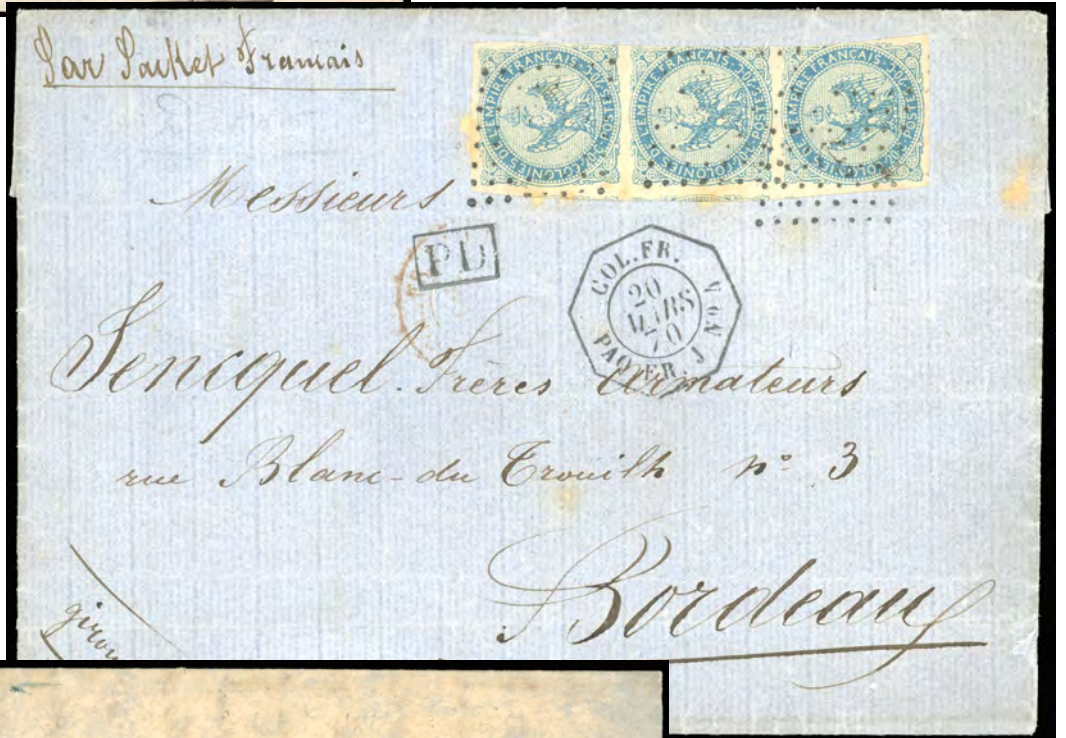 Par Packet Francais
COLONIES DE L'EMPIRE FRANÇAIS · 20c · POSTES · 20c
COLONIES DE L'EMPIRE FRANÇAIS · 20c · POSTES · 20c
COLONIES DE L'EMPIRE FRANÇAIS · 20c · POSTES · 20c
Messieurs
PD
COL. FR.
20
MARS
70
PAQ. FR. J No
Sencquel Frères Armateurs
rue Blanc-du Trouilh no 3
Bordeaux